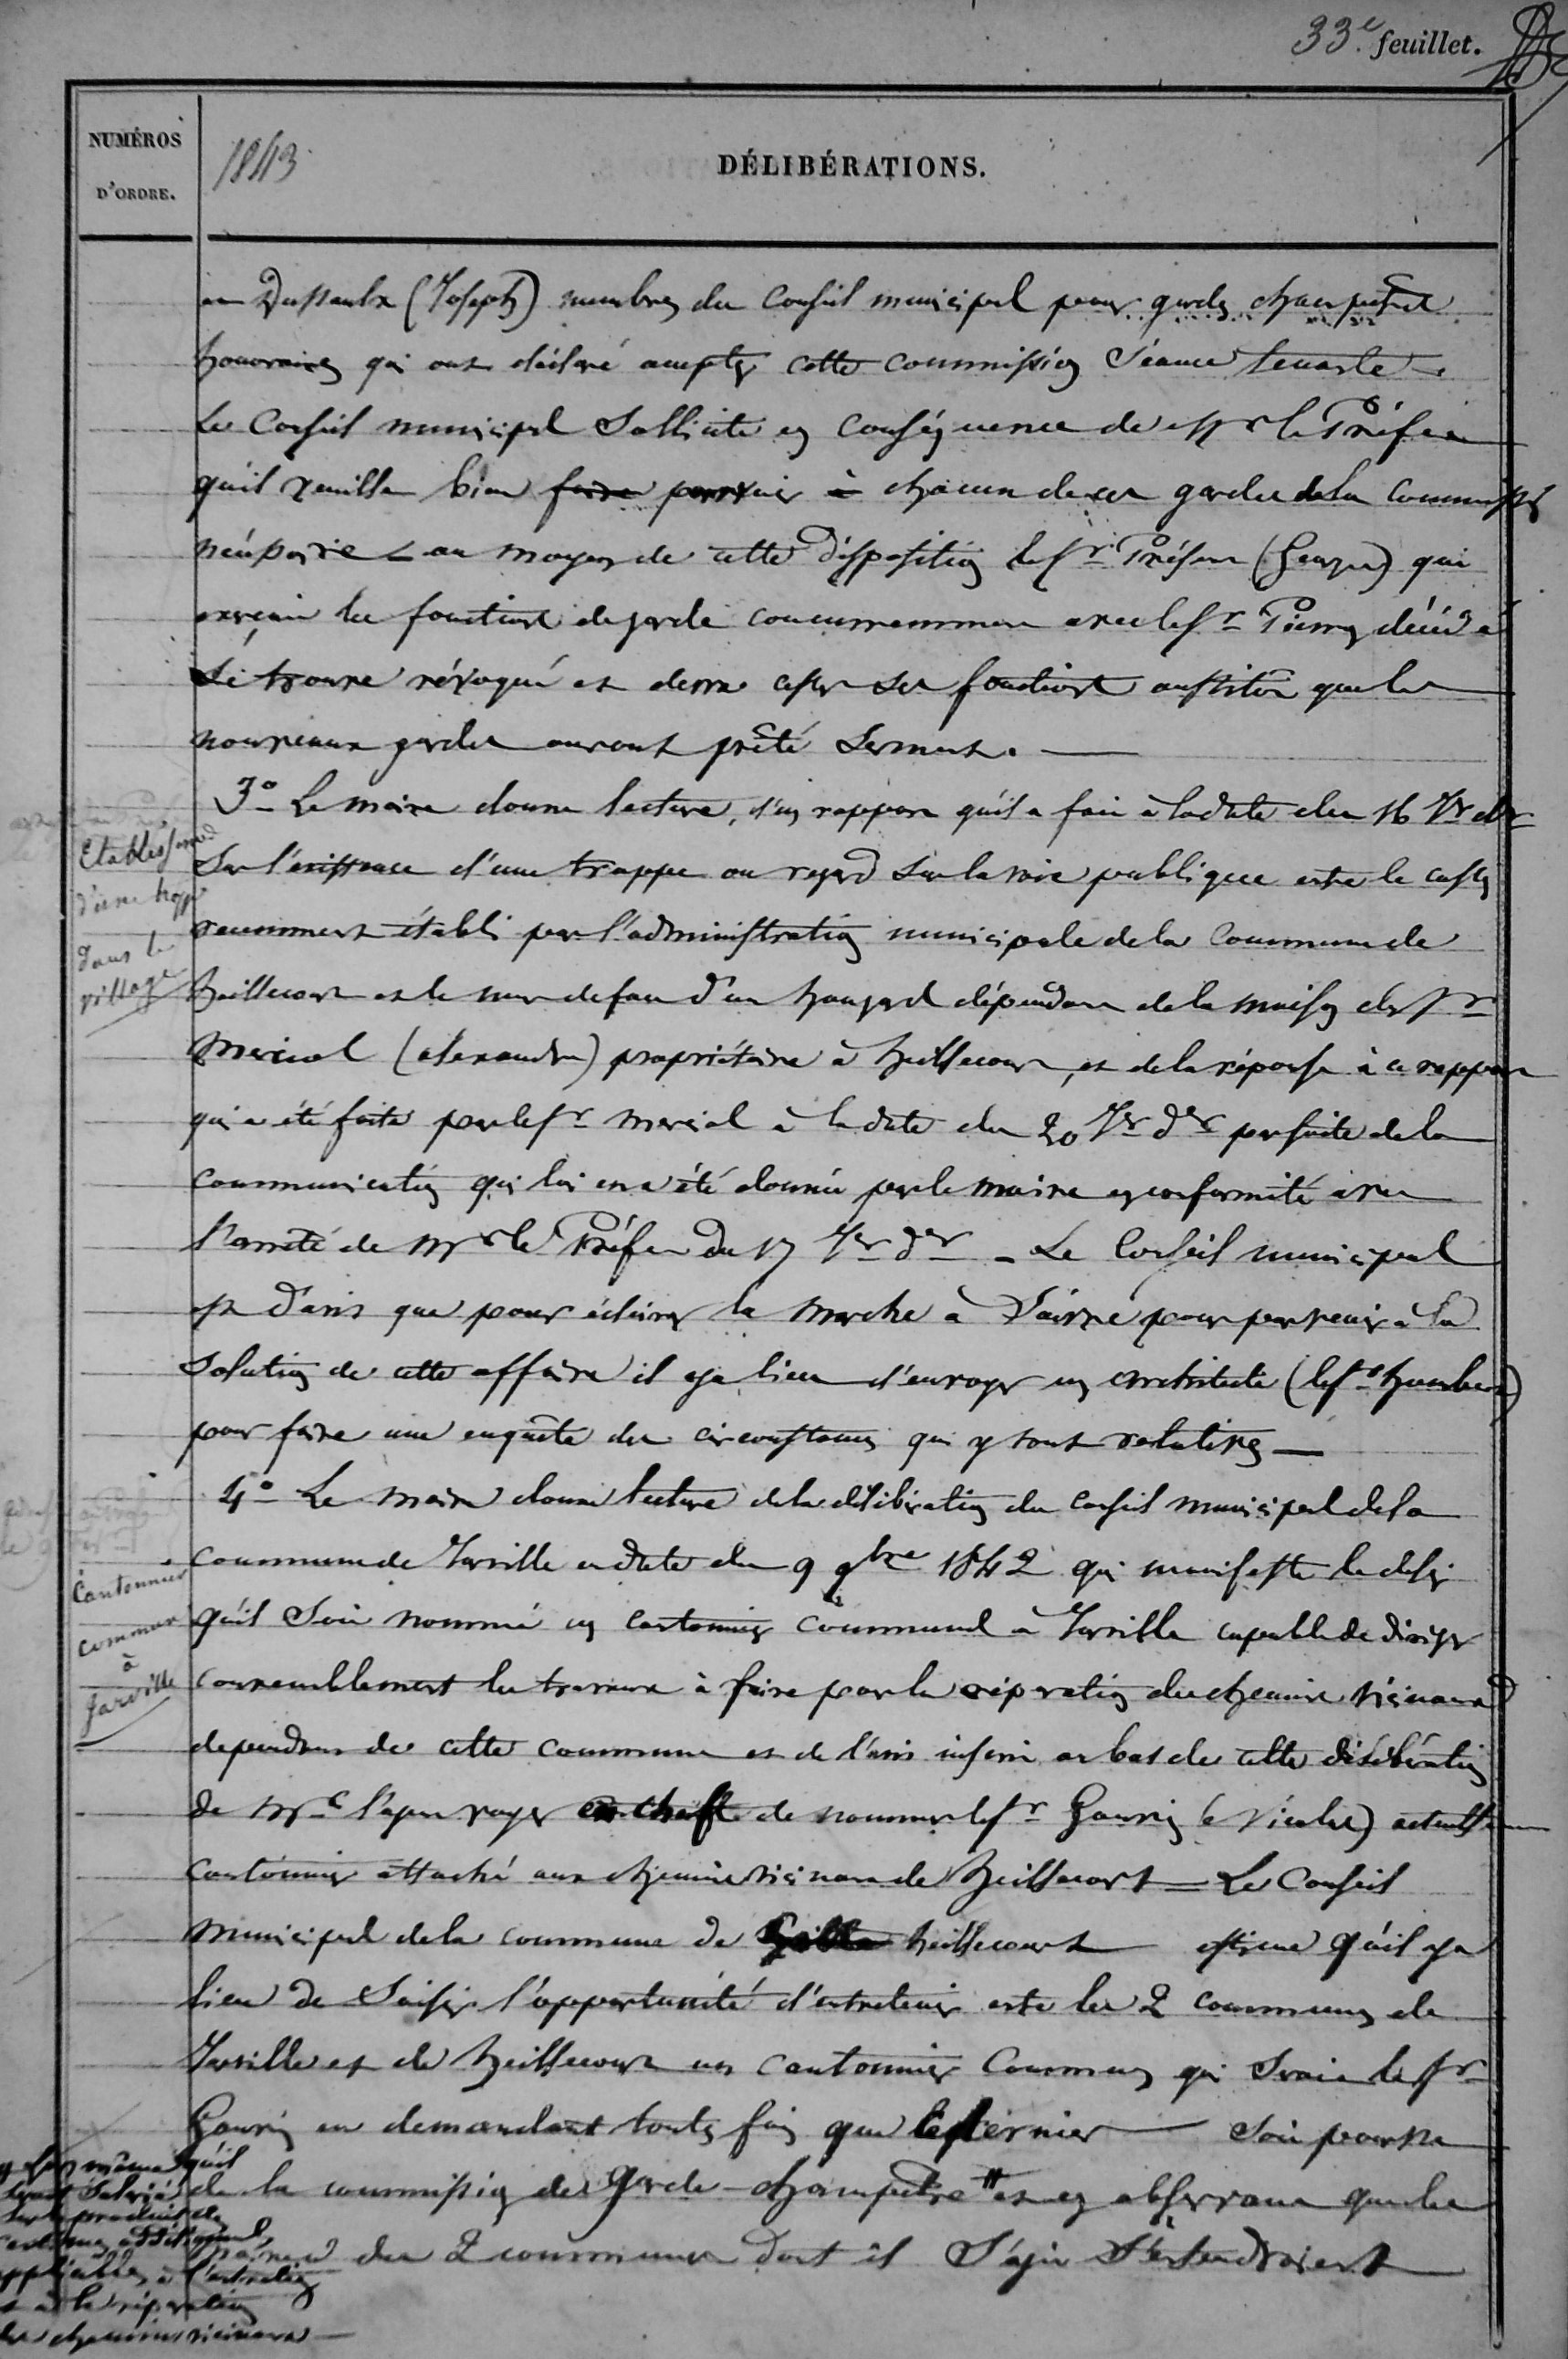 33e feuillet.
NUMÉROS
D'ORDRE.
1843
DÉLIBÉRATIONS.
Dussaulx (Joseph) membres du Conseil municipal pour gardes champêtres
honoraires qui ont déclaré accepter cette commission séance tenante.
Le Conseil municipal sollicite en conséquence de Mr le Préfet
qu'il veuille bien faire pourvoir à chacun de ces gardes de la commission
nécessaire - au moyen de cette disposition le Sr (George) qui
exerçait les fonctions de garde concurremment avec le Sr Pierry décédé
se trouve révoqué et devra cesser ses fonctions aussitôt que les
nouveaux gardes auront prêté serment.
3° Le maire donne lecture d'un rapport qu'il a fait à la date du 16
Etablissement
d'une trappe
dans le
village
sur l'existence d'une trappe ou regard sur la voie publique entre le
récemment établi par l'administration municipale de la Commune de
heillecourt et le mur de face d'un hangard dépendant de la maison du Sr
(alexandre) propriétaire à heillecourt, et de la réponse à ce rapport
qui a été faite par le Sr à la date du 20 par suite de la
communication qui lui en a été donnée par le maire en conformité avec
l'arrêté de Mr le Préfet du 17 - Le Conseil municipal
est d'avis que pour éclairer la marche à suivre pour parvenir à la
solution de cette affaire il y a lieu d'envoyer un architecte (le Sr humbert)
pour faire une enquête des circonstances qui y sont relatives
4° Le maire donne lecture de la délibération du conseil municipal de la
Cantonnier
commun
à
Jarville
commune de Jarville en date du 9 9bre 1842 qui manifeste le désir
qu'il soit nommé un cantonnier communal à Jarville capable de diriger
convenablement les travaux à faire pour la réparation des chemins vicinaux
dependans de cette commune et de l'avis inséré au bas de cette délibération
de Mr l'agent voyer en chef de nommer le Sr Gourry (Nicolas) actuellement
cantonnier attaché aux chemins vicinaux de heillecourt - Le Conseil
municipal de la commune de heillecourt estime qu'il y a
lieu de saisir l'opportunité d'entretenir entre les 2 communes de
Jarville et de heillecourt un cantonnier commun qui serait le Sr
Gourry en demandant toutes fois que ce dernier soit pourvu
de la commission de garde-champêtre # et en observant que les
des 2 communes dont il s'agit s'entendroient
même qu'il
serait salarié
sur le produit des
centimes additionnels
applicables à l'entretien
et à la réparation
des chemins vicinaux